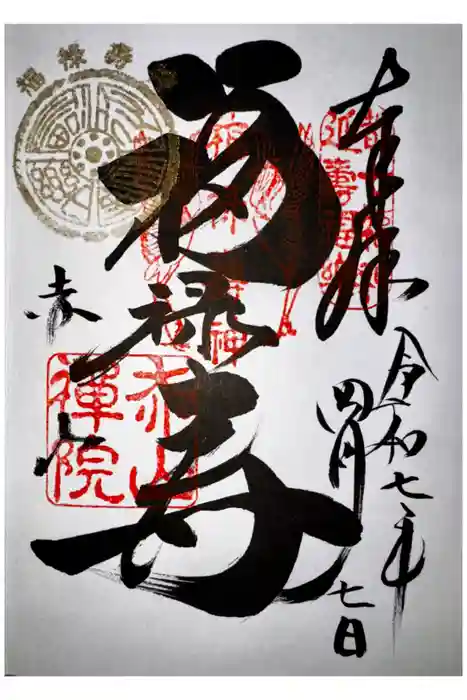 奉拝
令和七年
四月
七日
福禄寿
赤山
福禄寿
赤山
禪院